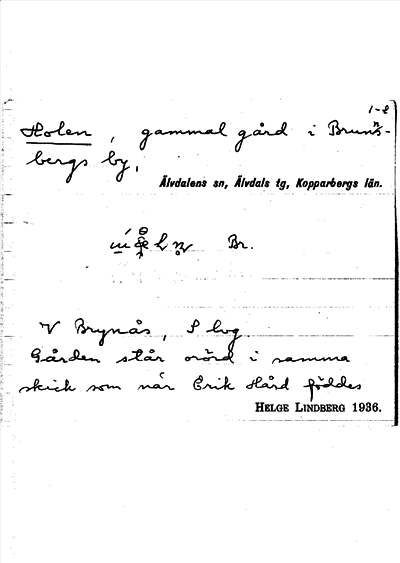 1-2
Holen, gammal gård i Bruns-
bergs by,
Älvdalens sn, Älvdals tg, Kopparbergs län.
Br.
V Brynås, S
Gården står orörd i samma
skick som när Erik Hård föddes
HELGE LINDBERG 1936.